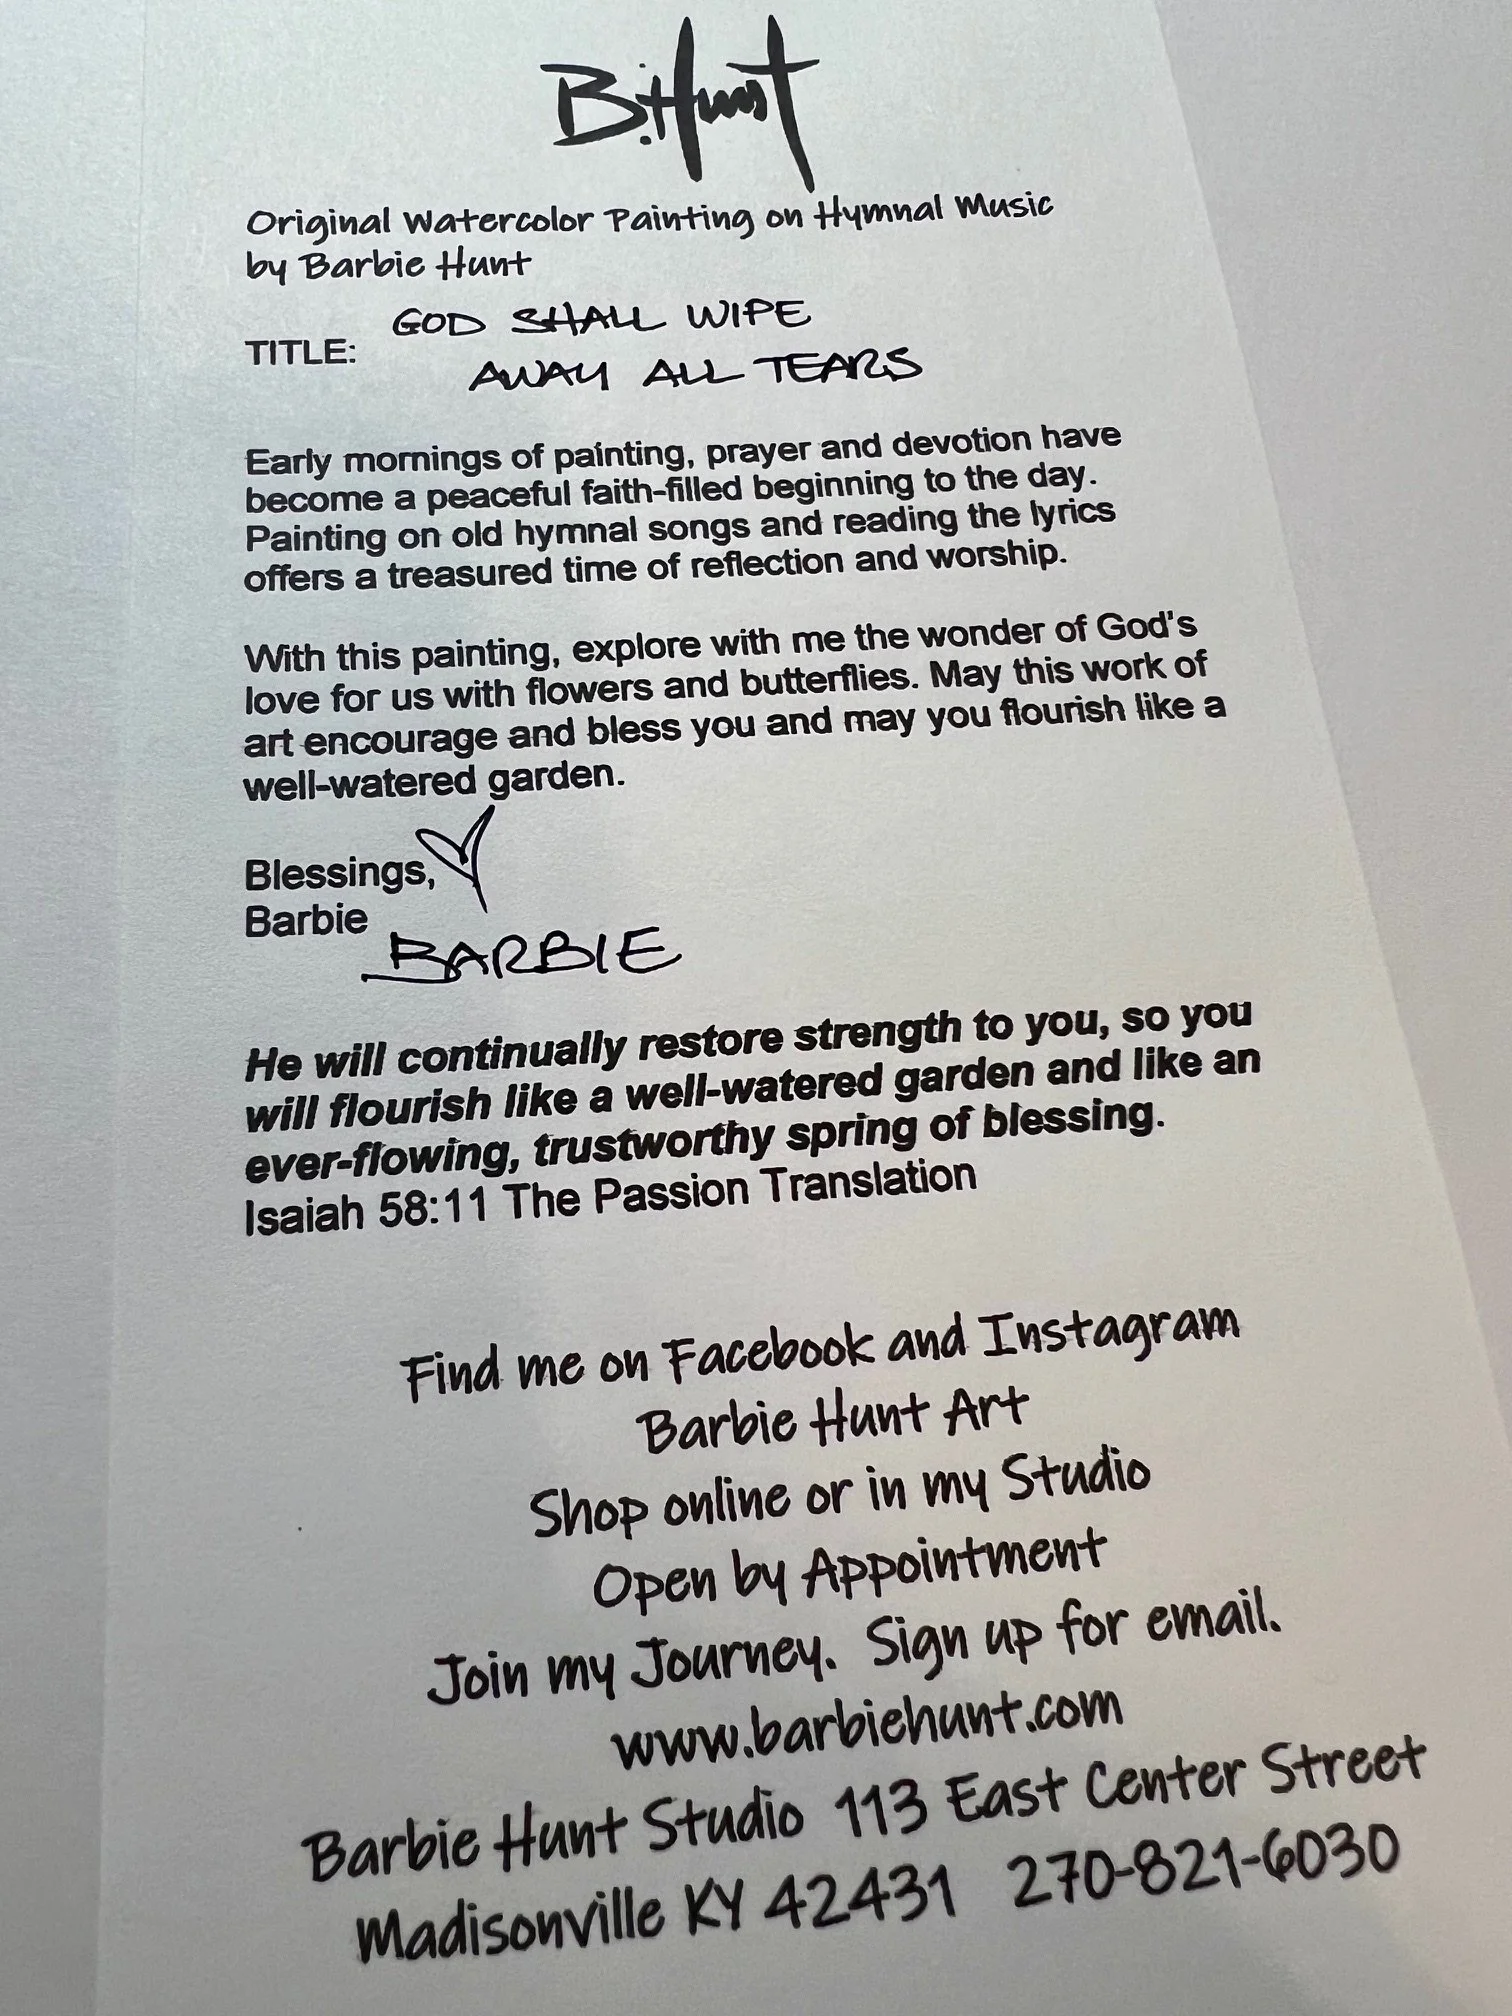 B.Hunt
Original Watercolor Painting on Hymnal Music
by Barbie Hunt
GOD SHALL WIPE
TITLE:
AWAY ALL TEARS
Early mornings of painting, prayer and devotion have
become a peaceful faith-filled beginning to the day.
Painting on old hymnal songs and reading the lyrics
offers a treasured time of reflection and worship.
With this painting, explore with me the wonder of God's
love for us with flowers and butterflies. May this work of
art encourage and bless you and may you flourish like a
well-watered garden.
Blessings,
Barbie
BARBIE
He will continually restore strength to you, so you
will flourish like a well-watered garden and like an
ever-flowing, trustworthy spring of blessing.
Isaiah 58:11 The Passion Translation
Find me on Facebook and Instagram
Barbie Hunt Art
Shop online or in my Studio
Open by Appointment
Join my Journey. Sign up for email.
www.barbiehunt.com
Barbie Hunt Studio 113 East Center Street
Madisonville KY 42431 270-821-6030